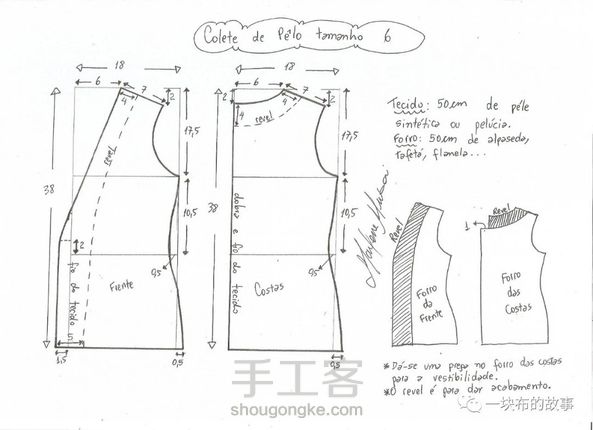 Colete de Pêlo tamanho 6
18
6
7
2
4
revel
17,5
38
10,5
2
0,5
fio do tecido
Frente
5
1,5
0,5
18
6
7
2
2
4
4
revel
17,5
38
10,5
dobra e fio do tecido
0,5
Costas
0,5
Tecido: 50cm de pêle
sintética ou pelúcia.
Forro: 50cm de alpaseda,
tafetá, flanela...
Marlene Mukai
Revel
Forro
da
Frente
Revel
1
Forro
das
Costas
*Dá-se uma prega no forro das costas
para a vestibilidade.
*O revel é para dar acabamento.
手工客
shougongke.com
一块布的故事